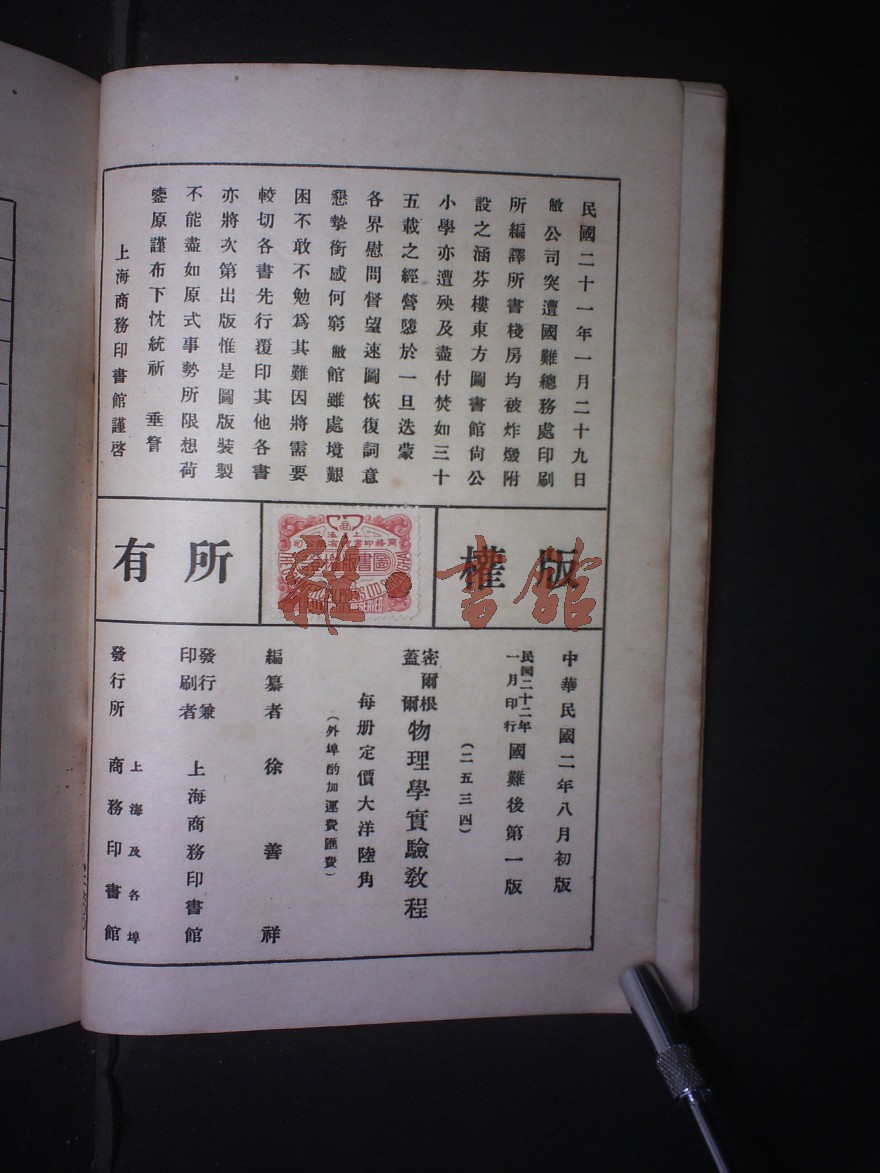 民國二十一年一月二十九日
敝公司突遭國難總務處印刷
所編譯所書棧房均被炸燬附
設之涵芬樓東方圖書館尚公
小學亦遭殃及盡付焚如三十
五載之經營隳於一旦迭蒙
各界慰問督望速圖恢復詞意
懇摯銜感何窮敝館雖處境艱
困不敢不勉爲其難因將需要
較切各書先行覆印其他各書
亦將次第出版惟是圖版裝製
不能盡如原式事勢所限想荷
鑒原謹布下忱統祈 垂詧
上海商務印書館謹啓
版權所有
中華民國二年八月初版
民國二十二年一月印行國難後第一版
(二五三四)
密爾根蓋爾物理學實驗教程
每册定價大洋陸角
(外埠酌加運費匯費)
編纂者 徐善祥
發行兼印刷者 上海商務印書館
發行所 上海及各埠商務印書館